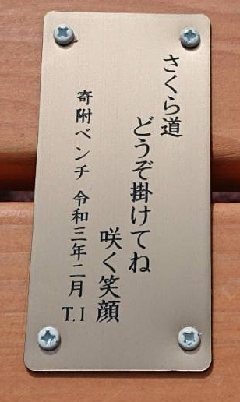 さくら道
どうぞ掛けてね
咲く笑顔
寄附ベンチ 令和三年二月 T.I